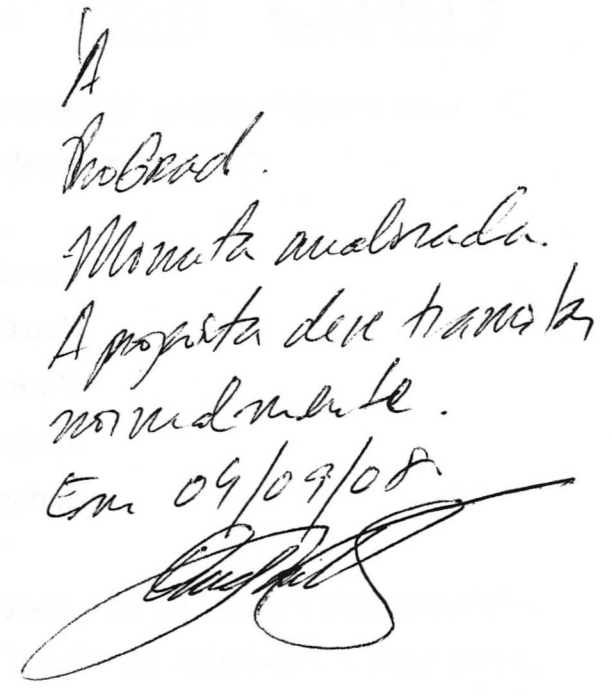 À
ProGrad.
Minuta analisada.
A proposta deve tramitar
normalmente.
Em 09/09/08.